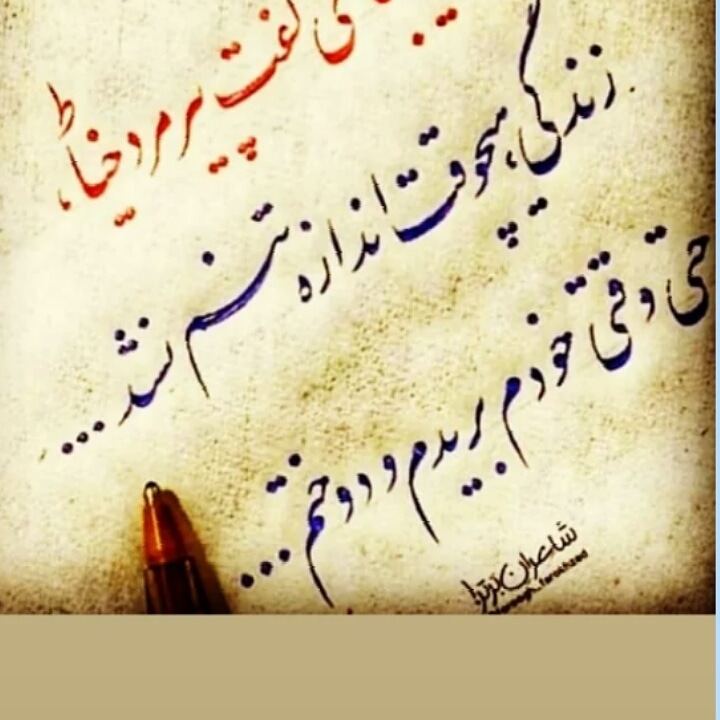 گفت پیرمرد خیاط،
زندگی، هیچوقت اندازه تنم نشد...
حتی وقتی خودم بریدم و دوختم...
شاعران برتر